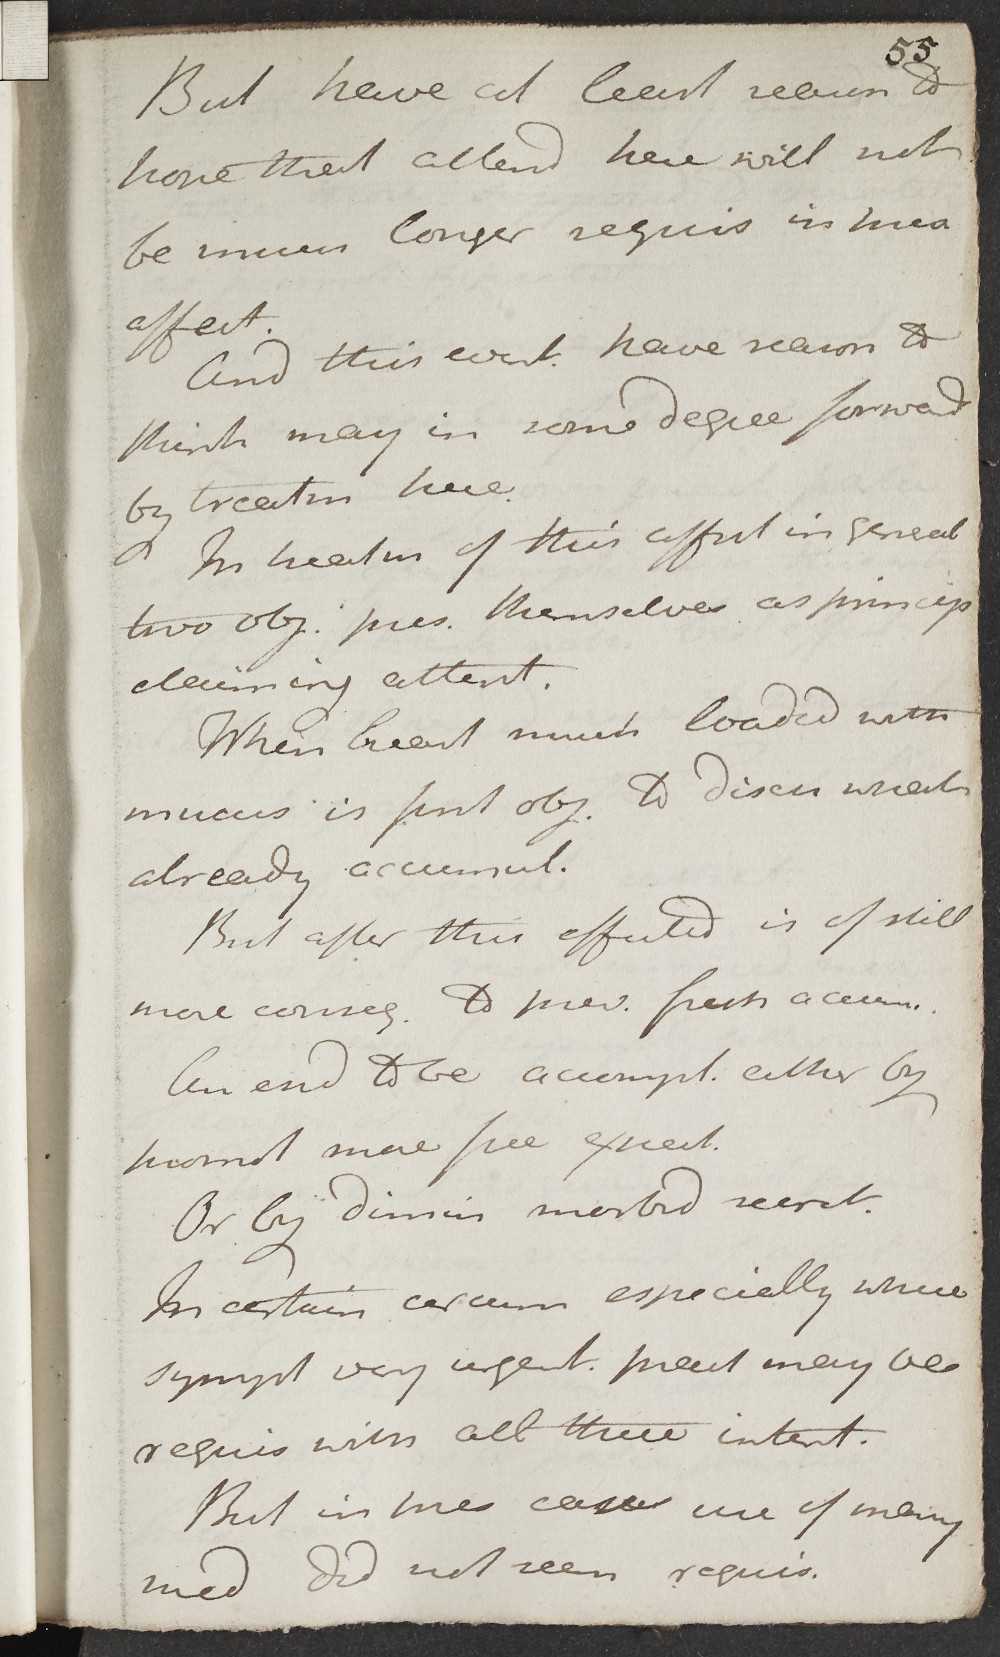 55
But have at least reason to
hope that attend here will not
be much longer requis in this
affect.
And this event. have reason to
think may in some degree forward
by treatm here.
In treatm of this affect in general
two obj. pres. themselves as princip
claiming attent.
When breast much loaded with
mucus is first obj. to disch what
already accumul.
But after this effected is of still
more conseq. to prev. fresh accum.
An end to be accompl. either by
promot more free expect.
Or by dimin morbid secret.
In certain circum especially where
sympt very urgent. pract may be
requis with all these intent.
But in this case use of many
med did not seem requis.